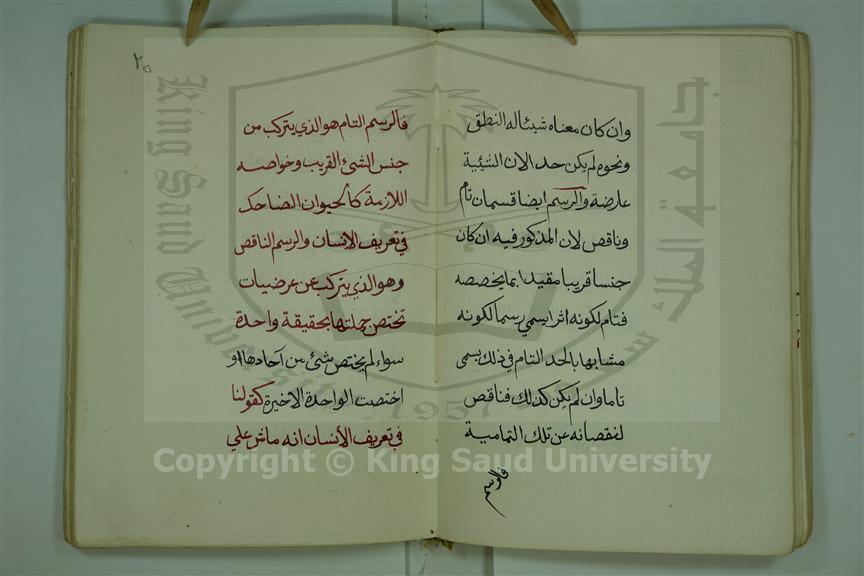 وان كان معناه شيئا له النطق
ونحوه لم يكن حدا لان الشيئية
عارضة والرسم ايضا قسمان تام
وناقص لان المذكور فيه ان كان
جنسا قريبا مقيدا بما يخصصه
فتام لكونه اثرا يسمي رسما لكونه
مشابها بالحد التام في ذلك يسمى
تاما وان لم يكن كذلك فناقص
لنقصانه عن تلك التمامية
فالرسم
٢٥
فالرسم التام هو الذي يتركب من
جنس الشئ القريب وخواصه
اللازمة كالحيوان الضاحك
في تعريف الانسان والرسم الناقص
وهو الذي يتركب عن عرضيات
تختص جملتها بحقيقة واحدة
سواء لم يختص شئ من آحادها او
اختصت الواحدة الاخيرة كقولنا
في تعريف الأنسان انه ماش علي
King Saud University
جامعة الملك سعود
1957
Copyright © King Saud University